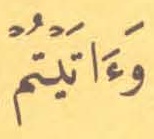 وَءَاتَيْتُمُ